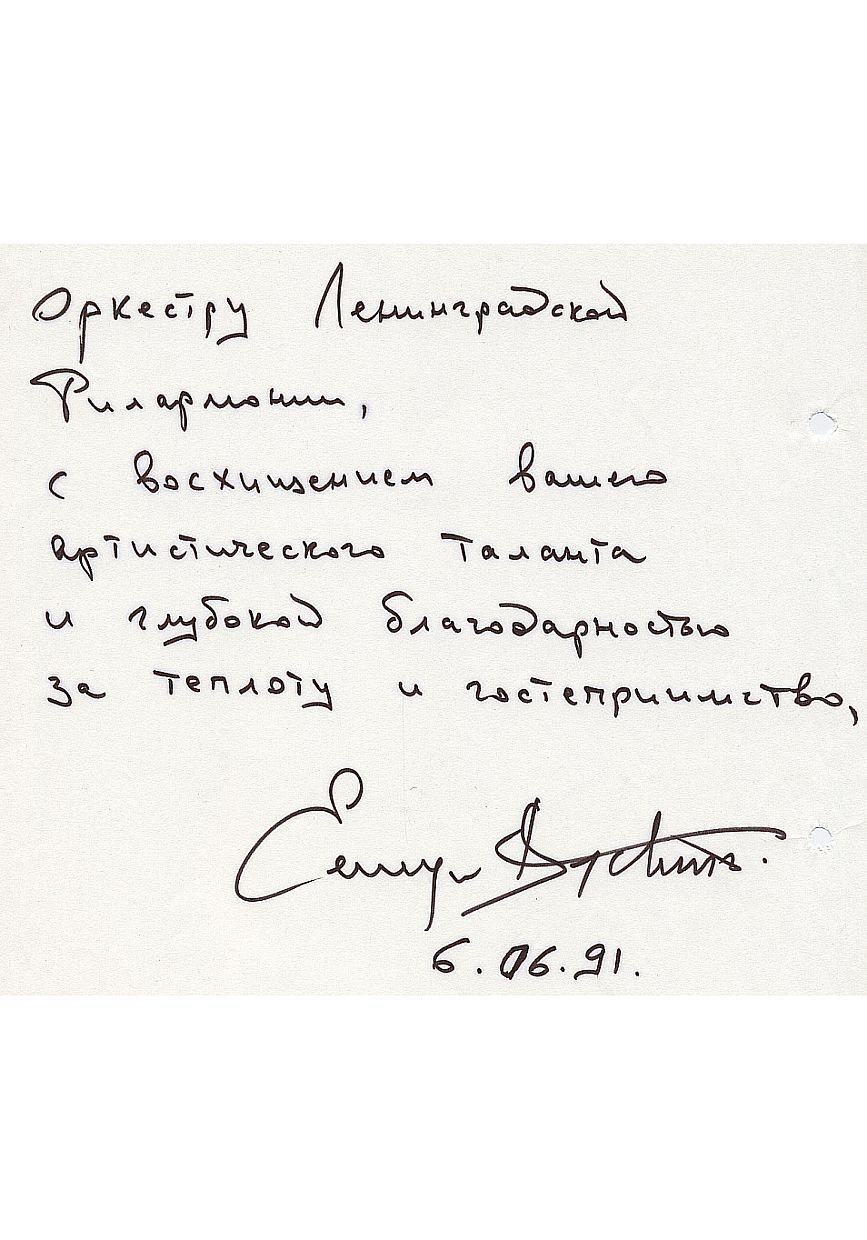 Оркестру Ленинградской
Филармонии,
с восхищением вашего
артистического таланта
и глубокой благодарностью
за теплоту и гостеприимство,
6.06.91.